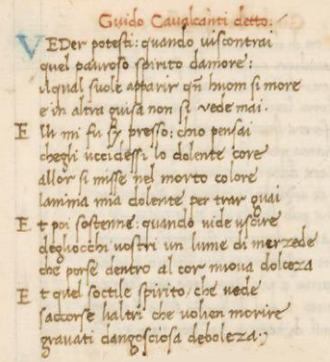 Guido Caualcanti detto.
VEDer potesti: quando uiscontrai
quel pauroso spirito damore:
ilqual suole apparir qñ huom si more
e in altra guisa non si uede mai.
Elli mi fu sy presso: chio pensai
chegli uccidessi lo dolente core
allor si misse nel morto colore
lanima mia dolente per trar guai
Et poi sostenne: quando uide uscire
degliocchi uostri un lume di merzede
che porse dentro al cor nuoua dolceza
Et quel soctile spirito, che uede
saccorse laltri che uolien morire
grauati dangosciosa deboleza: